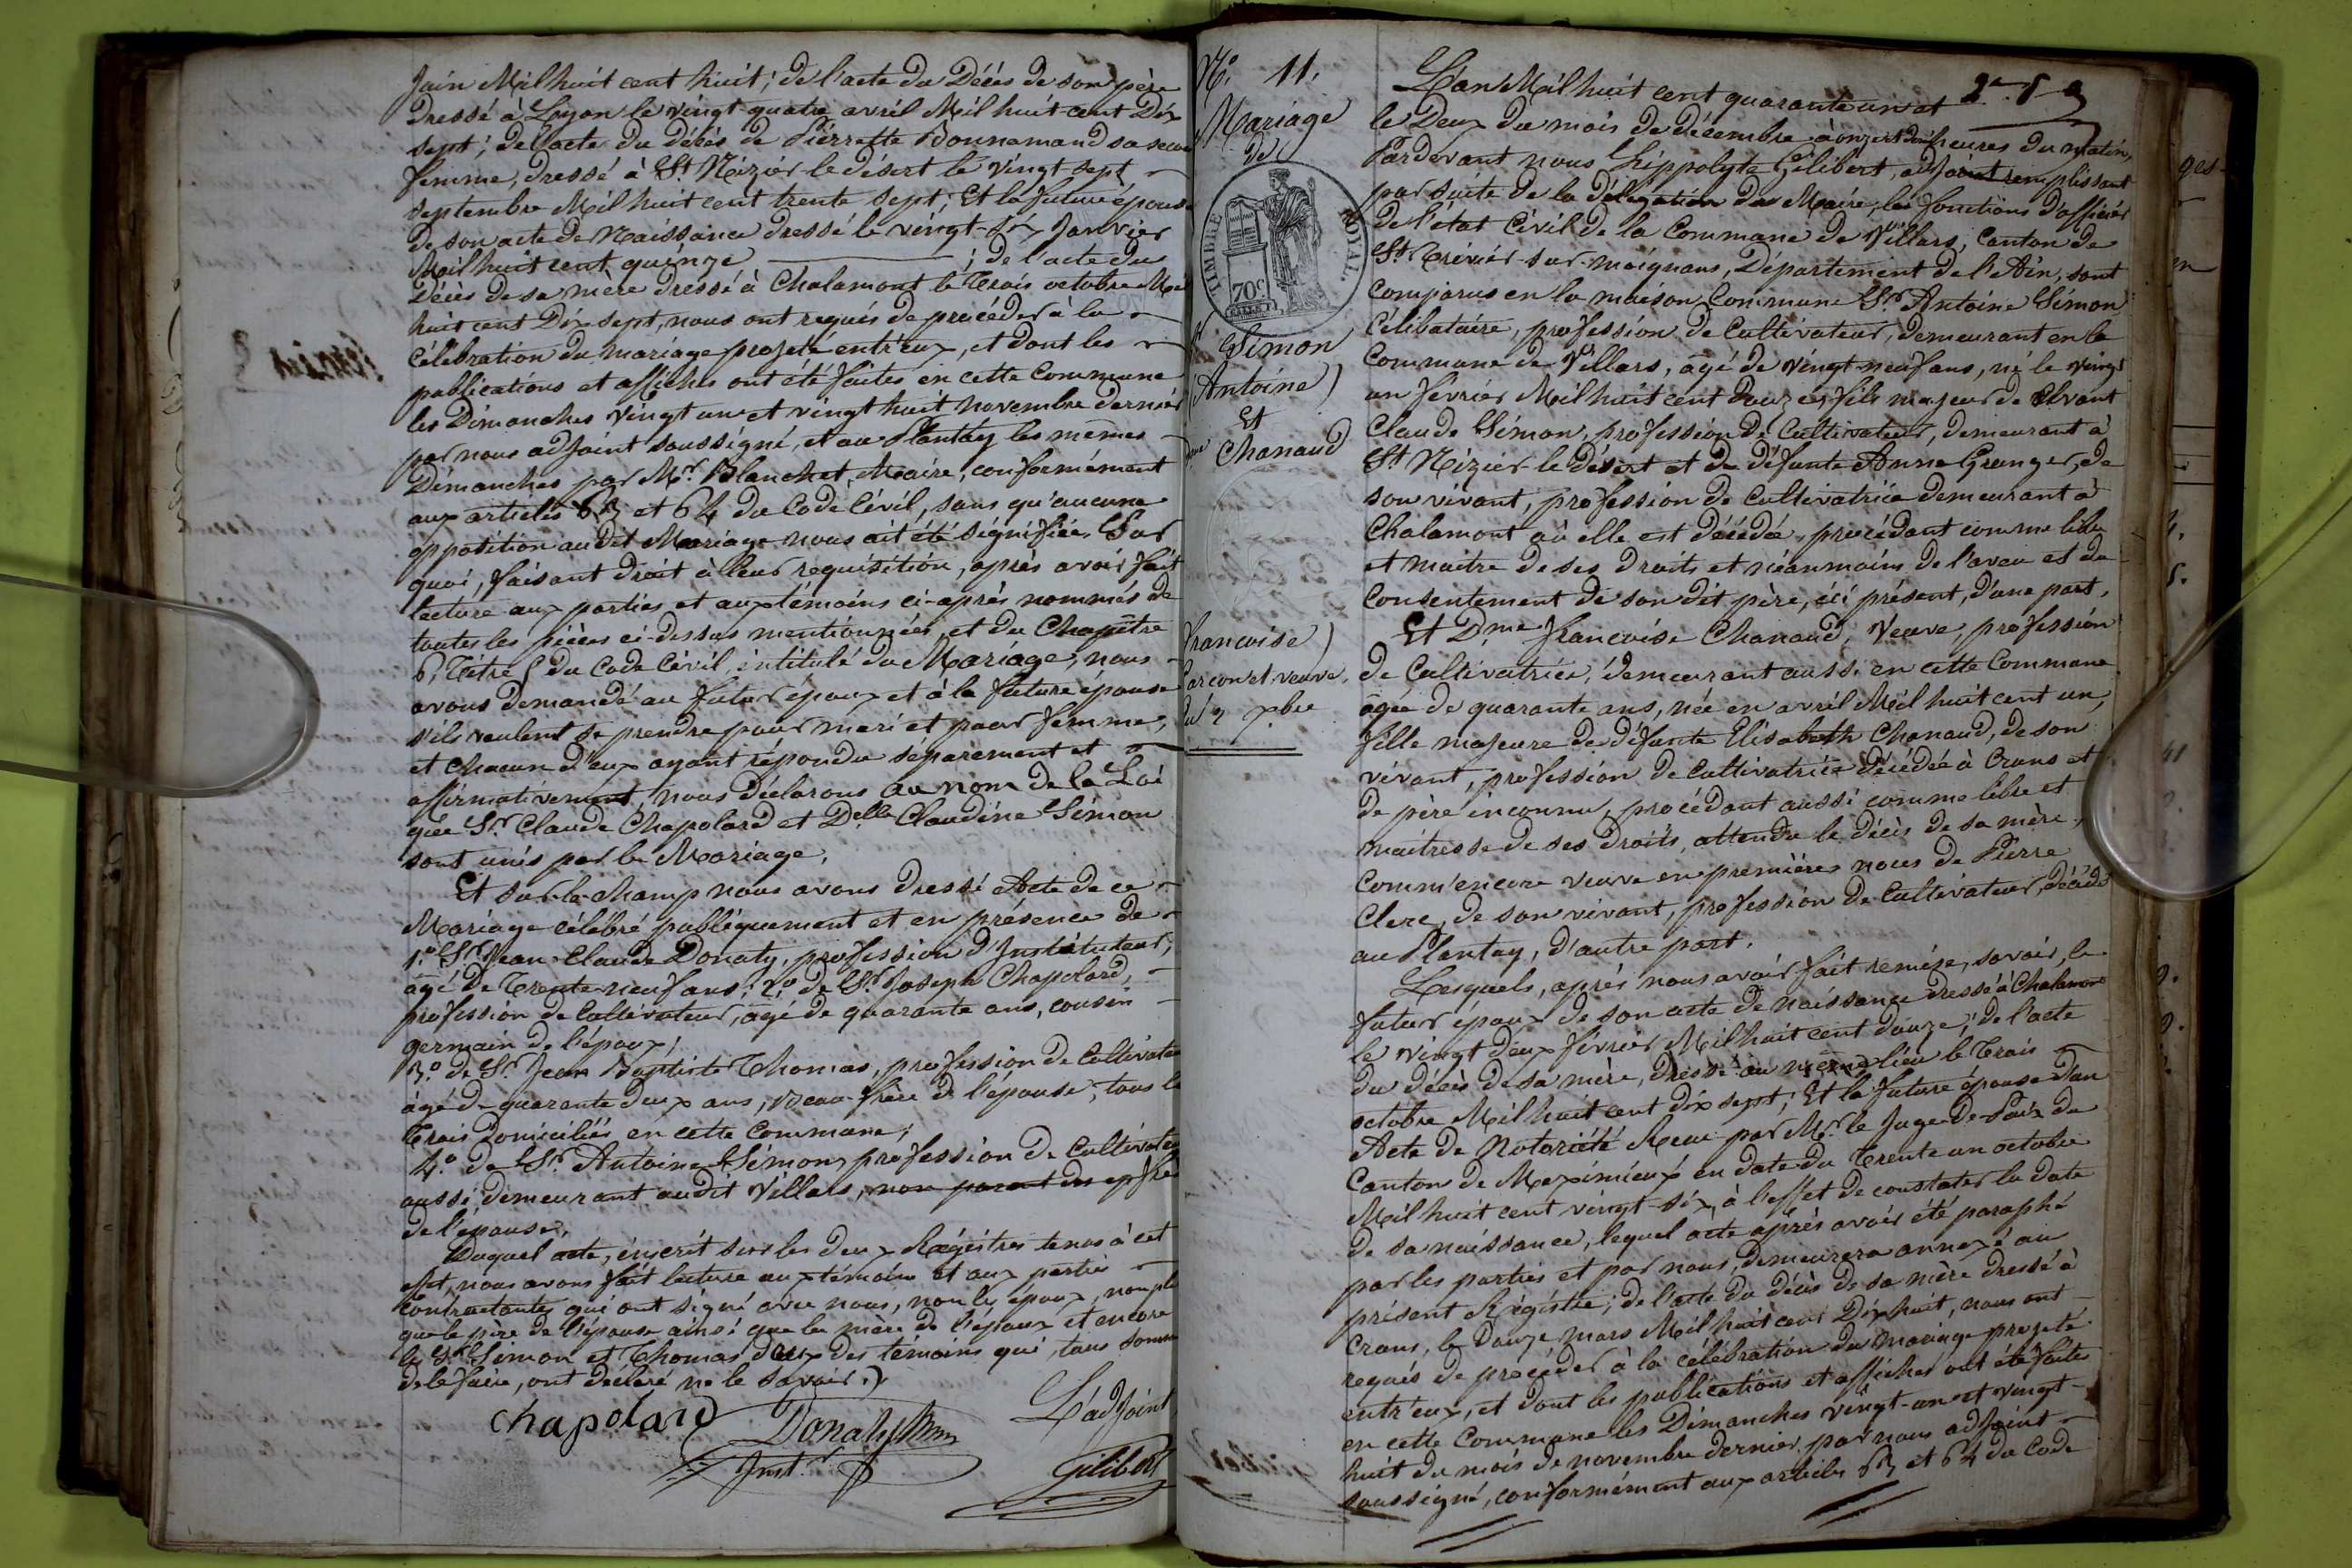 Juin Mil huit cent huit; de l'acte du Décès de son père
dressé à Lyon le vingt quatre avril Mil huit cent Dix
sept; de l'acte du décès de Pierrette Bonnemand sa
femme, dressé à St Nizier le désert le vingt sept
septembre Mil huit cent trente sept; Et la future épouse
de son acte de Naissance dressé le vingt-six Janvier
Mil huit cent quinze ; de l'acte du
Décès de sa mère dressé à Chalamont le Trois octobre Mil
huit cent Dix sept, nous ont requis de procéder à la
Célébration du mariage projeté entr'eux, et dont les
publications et affiches ont été faites en cette Commune
les Dimanches vingt un et vingt huit novembre dernier
par nous adjoint soussigné, et au Plantay les mêmes
Dimanches par Mr. Blanchet, Maire, conformément
aux articles 63 et 64 du Code Civil, sans qu'aucune
opposition audit Mariage nous ait été signifiée. Sur
quoi, faisant droit à leur requisition, après avoir fait
lecture aux parties et aux témoins ci-après nommés de
toutes les pièces ci-dessus mentionnées, et du Chapitre
6, Titre 5 du Code Civil, intitulé du Mariage, nous
avons demandé au futur époux et à la future épouse
s'ils veulent se prendre pour mari et pour femme,
et chacun d'eux ayant répondu séparement et
affirmativement, nous déclarons au nom de la Loi
que Sr. Claude Chapolard et Delle Claudine Simon
sont unis par le Mariage.
Et sur-le-champ nous avons dressé Acte de ce
Mariage célébré publiquement et en présence de
1.° Sr. Jean-Claude Donaty, profession d'Instituteur,
âgé de Trente-neuf ans; 2.° de Sr. Joseph Chapolard,
profession de Cultivateur, âgé de quarante ans, cousin
germain de l'époux;
3.° de Sr. Jean Baptiste Thomas, profession de Cultivateur
âgé de quarante deux ans, Beau-frère de l'épouse, tous les
Trois domiciliés en cette Commune;
4.° de Sr. Antoine Simon, profession de Cultivateur
aussi demeurant audit Villars, non parent des ep frère
de l'épouse;
Duquel acte, inscrit sur les deux Régistres tenus à cet
effet, nous avons fait lecture aux témoins et aux parties
contractantes qui ont signé avec nous, non les époux, non plus
que le père de l'épouse ainsi que la mère de l'époux et encore
les Srs. Simon et Thomas deux des témoins qui, tous sommés
de le faire, ont déclaré ne le savoir.
chapolard Donaty L'adjoint
Inst.r Gilibert
N.° 11.
Mariage
de
TIMBRE ROYAL
70c
Simon
Antoine
Et
Chanaud
francoise
Garcon et veuve.
du 2 xbre
L'an Mil huit cent quarante un et
le Deux du mois de décembre à onze heures du matin,
Pardevant nous Hippolyte Gilibert, adjoint remplissant
par suite de la délégation du Maire, les fonctions d'officier
de l'état Civil de la Commune de Villars, Canton de
St Trivier-sur-moignans, Département de l'Ain, sont
Comparus en la maison Commune Sr. Antoine Simon
Célibataire, profession de Cultivateur, demeurant en la
Commune de Villars, âgé de vingt-neuf ans, né le vingt
un février Mil huit cent Douze, fils majeur de vivant
Claude Simon, profession de Cultivateur, demeurant à
St Nizier le désert et de défunte Anne Granger, de
son vivant, profession de Cultivatrice demeurant à
Chalamont où elle est décédée, procédant comme libre
et maître de ses droits et néanmoins de l'aveu et du
Consentement de son dit père, ici présent, d'une part,
Et Dme francoise Chanaud, Veuve, profession
de Cultivatrice, demeurant aussi en cette Commune
âgée de quarante ans, née en avril Mil huit cent un,
fille majeure de défunte Elisabeth Chanaud, de son
vivant, profession de Cultivatrice décédée à Crans et
de père inconnu, procédant aussi comme libre et
maitresse de ses droits, attendu le décès de sa mère,
Comm'encore veuve en premières noces de Pierre
Clerc, de son vivant, profession de Cultivateur, décédé
au Plantay, d'autre part.
Lesquels, après nous avoir fait remise, savoir, le
futur époux de son acte de naissance dressé à Chalamont
le vingt deux février Mil huit cent douze; de l'acte
du décès de sa mère, dressé au même lieu le Trois
octobre Mil huit cent dix sept; Et la future épouse d'un
Acte de Notoriété Recu par Mr. le Juge-de-Paix du
Canton de Meximieux en date du Trente un octobre
Mil huit cent vingt-six, à l'effet de constater la date
de sa naissance, lequel acte après avoir été paraphé
par les parties et par nous, demeurera annexé au
présent Régistre; de l'acte du décès de sa mère dressé à
Crans, le Douze mars Mil huit cent Dix huit, nous ont
requis de procéder à la célébration du mariage projeté
entr'eux, et dont les publications et affiches ont été faites
en cette Commune les Dimanches vingt-un et vingt-
huit du mois de novembre dernier par nous adjoint
soussigné, conformément aux articles 63 et 64 du Code